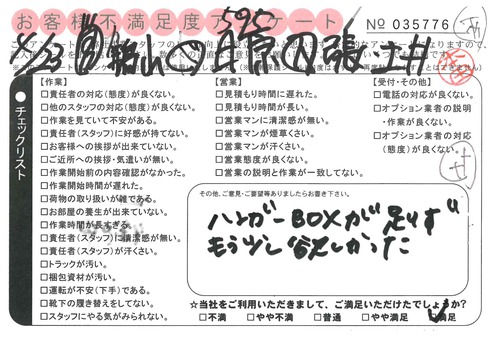 お客様不満足度アンケート
No 035776
チェックリスト
【作業】
□責任者の対応(態度)が良くない。
□他のスタッフの対応(態度)が良くない。
□作業を見ていて不安がある。
□責任者(スタッフ)に好感が持てない。
□お客様への挨拶が出来ていない。
□ご近所への挨拶・気遣いが無い。
□作業開始前の内容確認がなかった。
□作業開始時間が遅れた。
□荷物の取り扱いが雑である。
□お部屋の養生が出来ていない。
□作業時間が長すぎる。
□責任者(スタッフ)に清潔感が無い。
□責任者(スタッフ)が汗くさい。
□トラックが汚い。
□梱包資材が汚い。
□運転が不安(下手)である。
□靴下の履き替えをしてない。
□スタッフにやる気がみられない。
【営業】
□見積もり時間に遅れた。
□見積もり時間が長い。
□営業マンに清潔感が無い。
□営業マンが煙草くさい。
□営業マンが汗くさい。
□営業態度が良くない。
□営業の説明と作業が一致してない。
【受付・その他】
□電話の対応が良くない。
□オプション業者の説明
・作業が良くない。
□オプション業者の対応
(態度)が良くない。
その他、ご意見・ご要望等ありましたらお書き下さい。
ハンガーBOXが足りず
もう少し欲しかった
☆当社をご利用いただきまして、ご満足いただけたでしょうか?
□不満 □やや不満 □普通 □やや満足 □満足